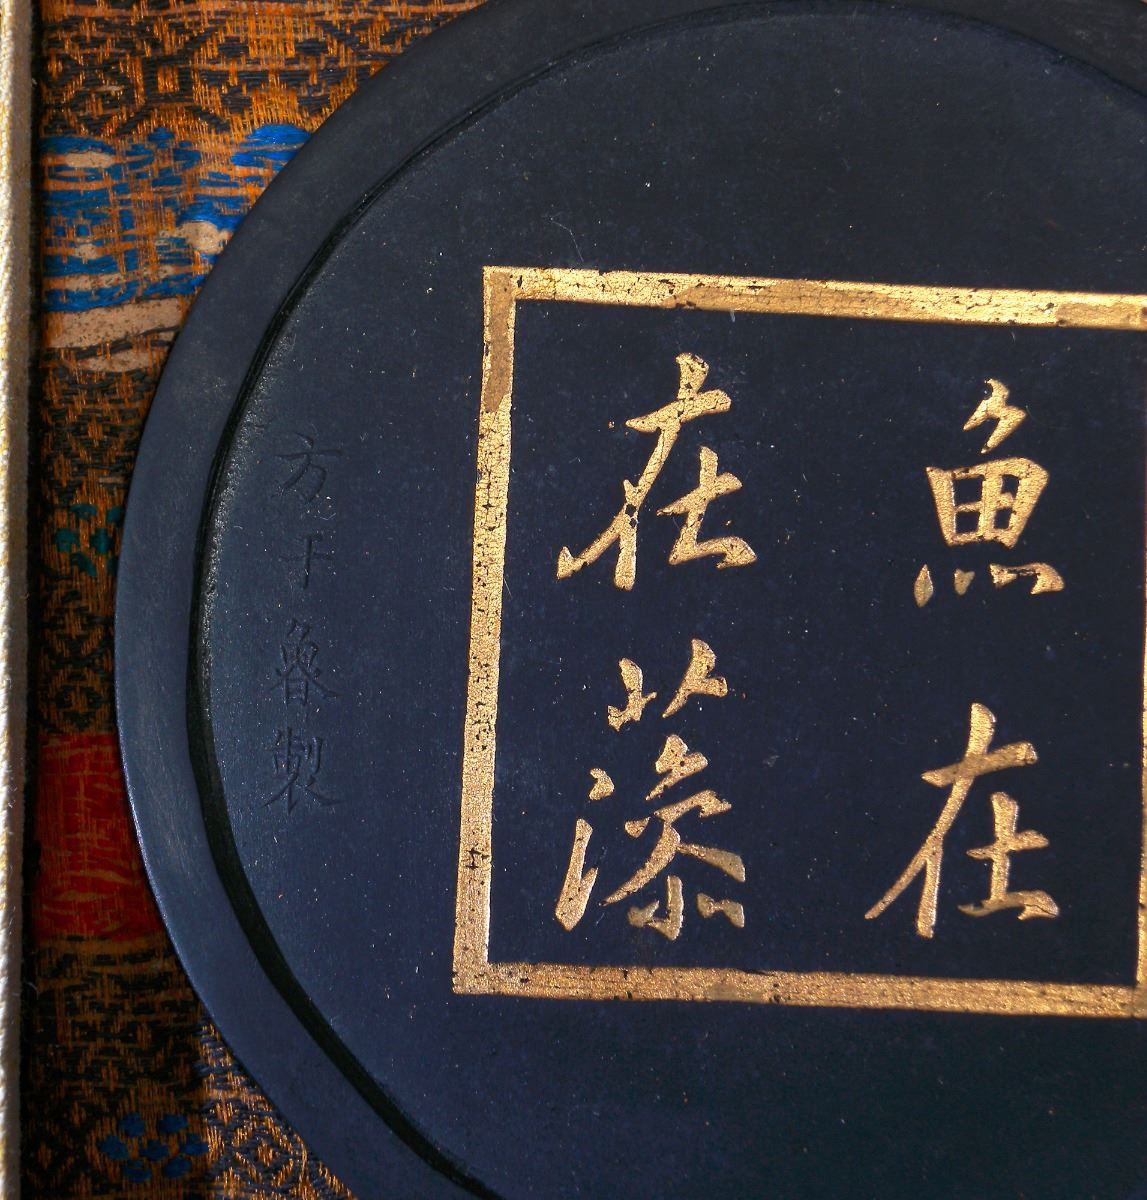 魚在
在藻
方于魯製